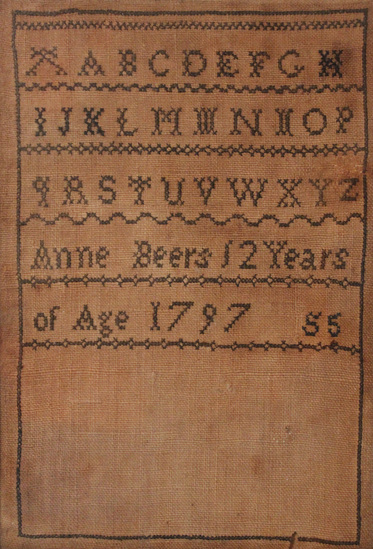 A A B C D E F G H
I J K L M M N N O P
Q R S T U V W X Y Z
Anne Beers 12 Years
of Age 1797 S5